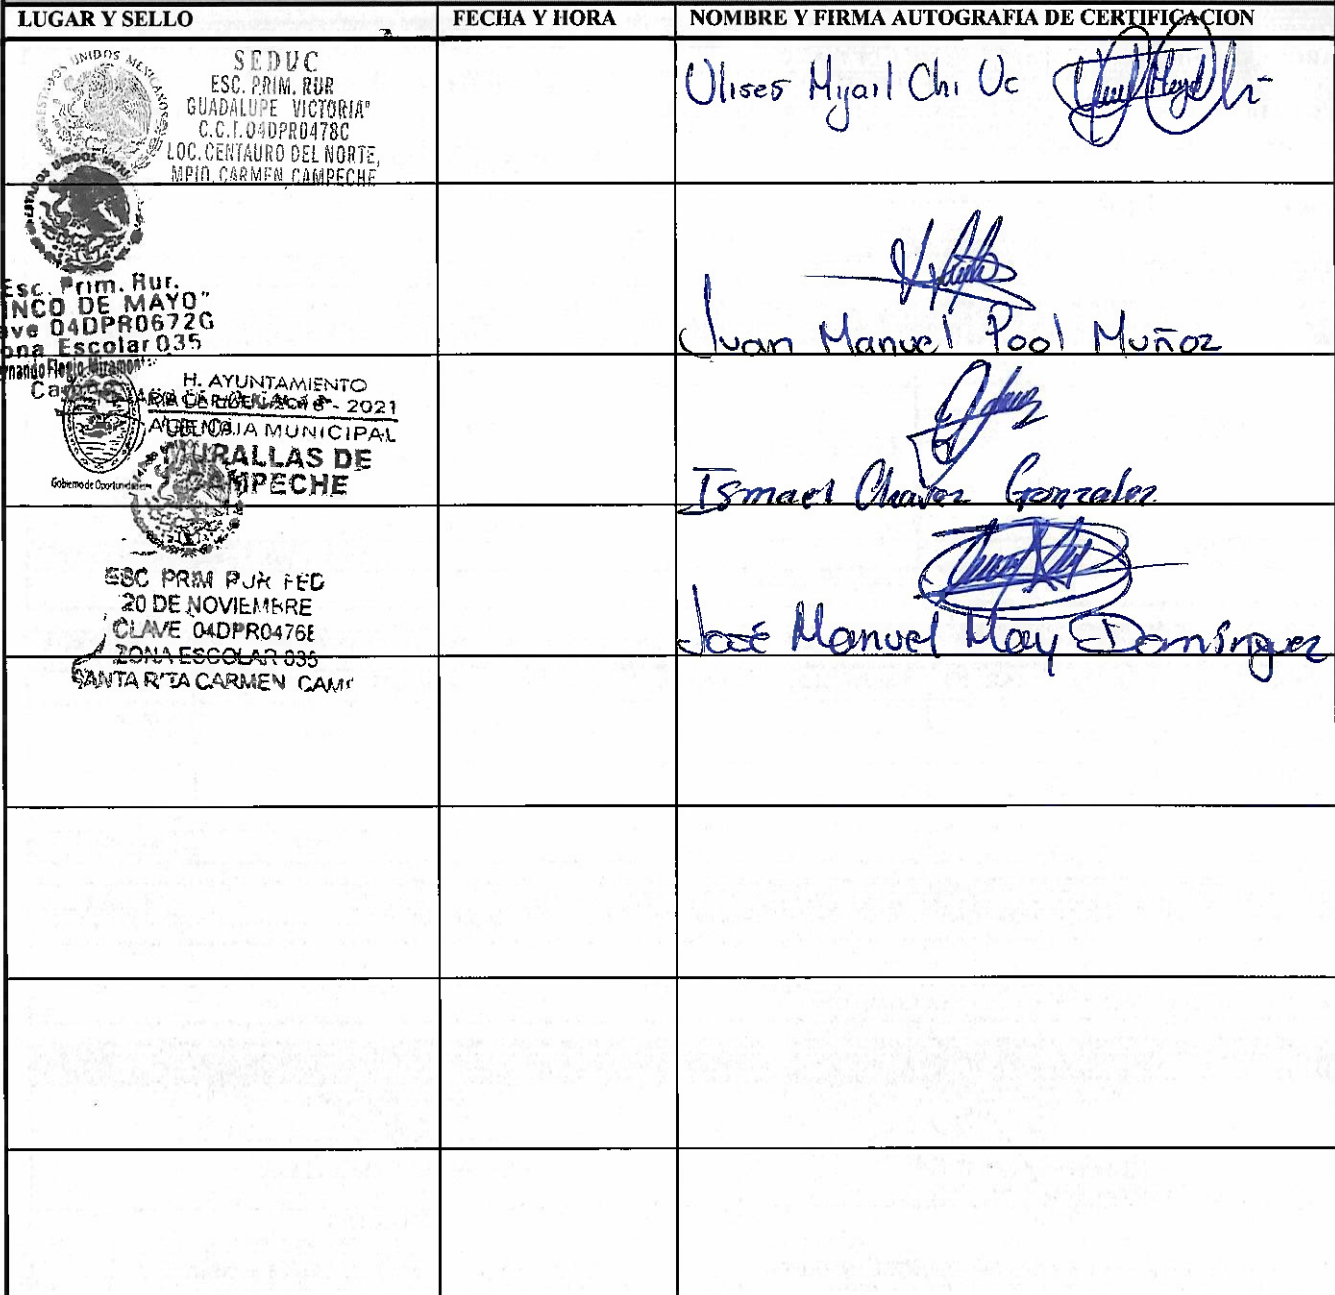 LUGAR Y SELLO
FECHA Y HORA
NOMBRE Y FIRMA AUTOGRAFIA DE CERTIFICACION
UNIDOS MEXICANOS
SEDUC
ESC. PRIM. RUR
GUADALUPE VICTORIA"
C.C.T. 04DPR0478C
LOC. CENTAURO DEL NORTE,
MPIO. CARMEN, CAMPECHE
Ulises Myail Chi Uc
Esc. Prim. Rur.
INCO DE MAYO"
ve 04DPR0672G
ona Escolar 035
Juan Manuel Pool Muñoz
H. AYUNTAMIENTO
- 2021
MUNICIPAL
MURALLAS DE
CAMPECHE
Gobierno de
Ismael Chavez Gonzalez
ESC PRIM RUR FED
20 DE NOVIEMBRE
CLAVE 04DPR0476E
ZONA ESCOLAR 035
SANTA RITA CARMEN CAM
José Manuel May Domínguez